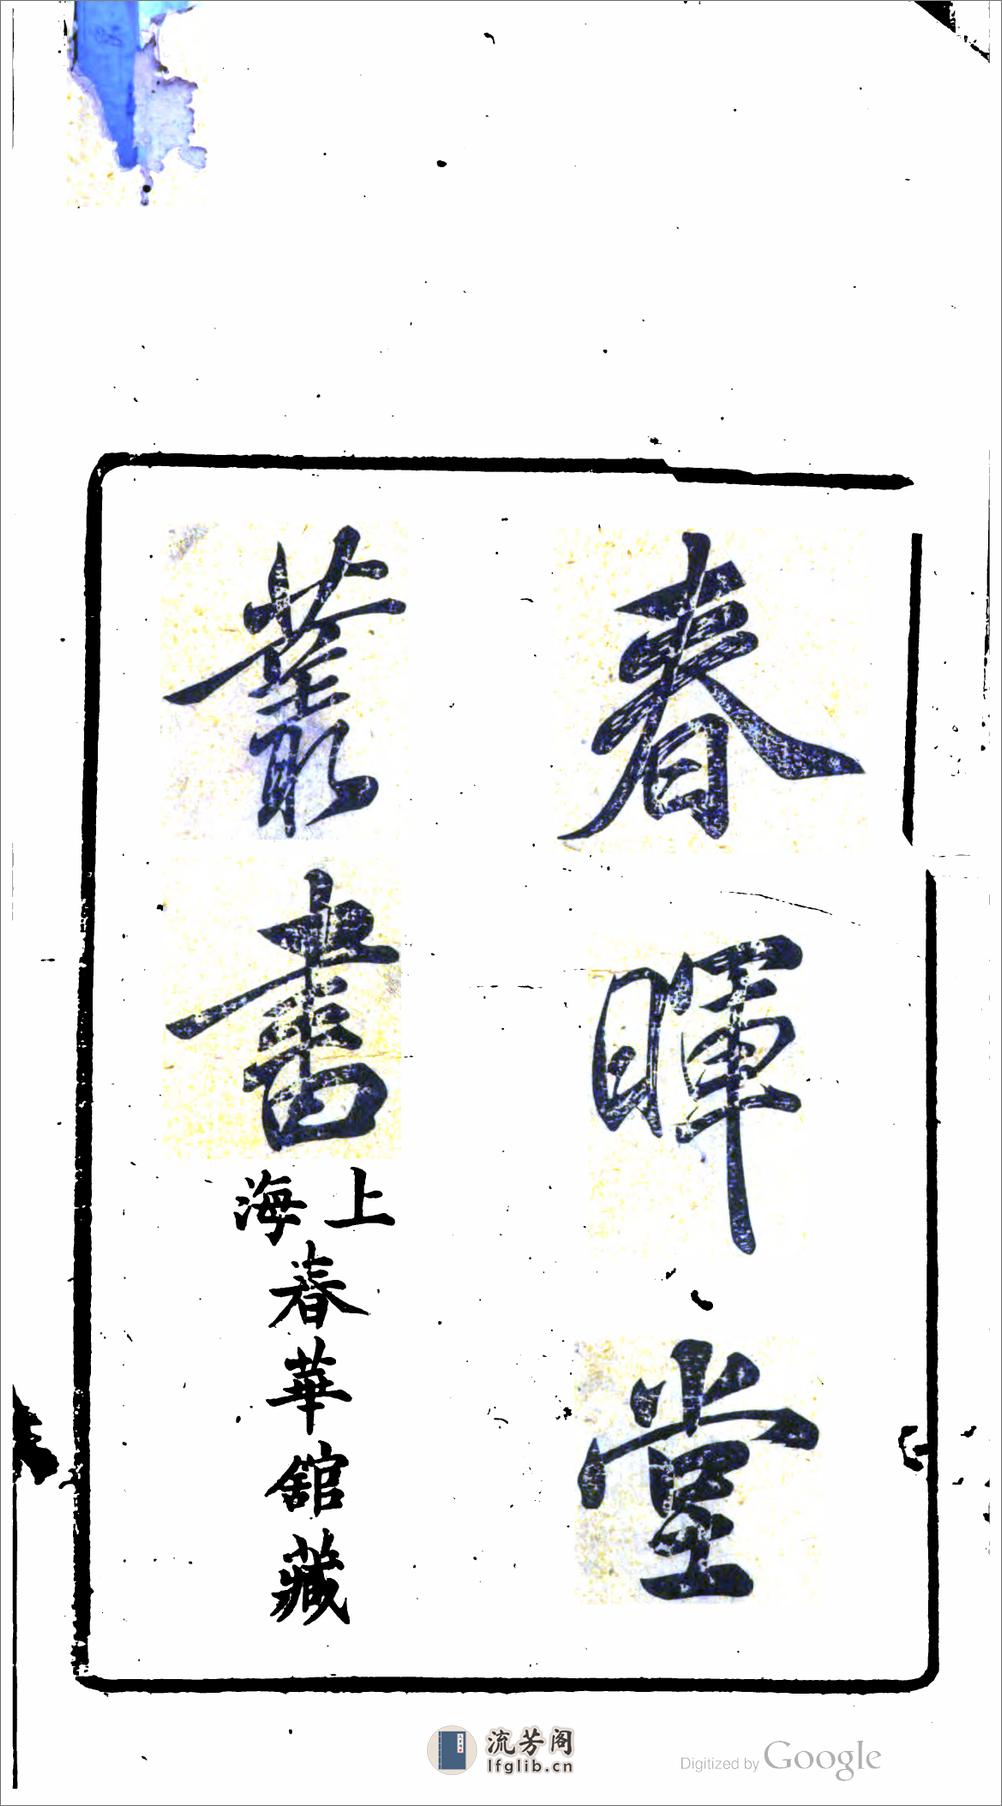 春暉堂
叢書
上海春華舘藏
流芳阁
lfglib.cn
Digitized by Google